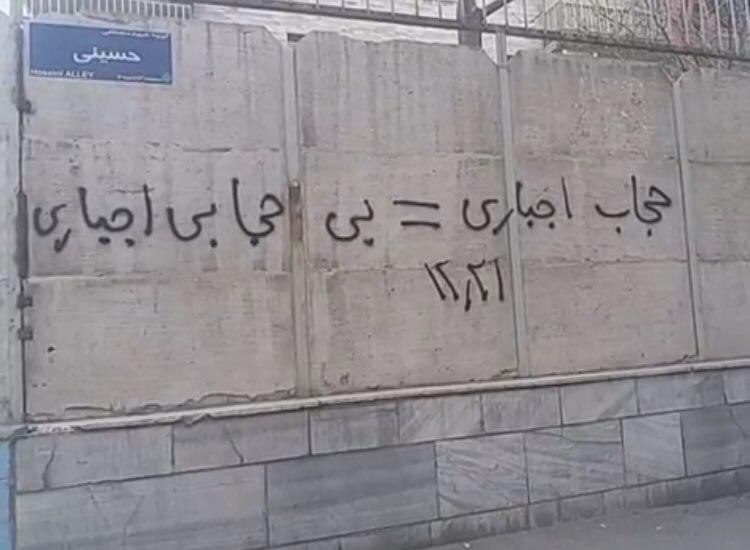 حسینی
Hoseini ALLEY
حجاب اجباری = بی حجابی اجباری